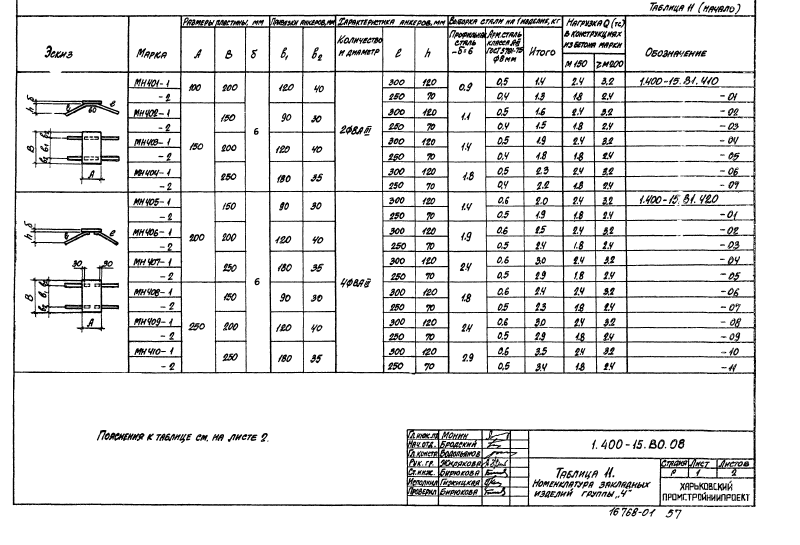 Таблица 11 (начало)
Эскиз Марка Размеры пластины, мм Привязки анкеров, мм Характеристика анкеров, мм Выборка стали на 1 изделие, кг Нагрузка Q (тс) в конструкциях из бетона марки Обозначение
А В б в1 в2 Количество и диаметр ℓ h Профильная сталь -б=6 Арм. сталь класса А-III ГОСТ 5781-75 ф8мм Итого М 150 ≥М200
МН401-1 100 200 6 120 40 2ф8АIII 300 120 0.9 0,5 1.4 2.4 3.2 1.400-15.В1.410
-2 250 70 0,4 1.3 1.8 2.4 -01
МН402-1 150 150 90 30 300 120 1.1 0,5 1.6 2.4 3.2 -02
-2 250 70 0,4 1.5 1.8 2.4 -03
МН403-1 200 120 40 300 120 1.4 0,5 1.9 2.4 3.2 -04
-2 250 70 0,4 1.8 1.8 2.4 -05
МН404-1 250 180 35 300 120 1.8 0,5 2.3 2.4 3.2 -06
-2 250 70 0,4 2.2 1.8 2.4 -09
МН405-1 200 150 6 90 30 4ф8АIII 300 120 1.4 0,6 2.0 2.4 3.2 1.400-15.В1.420
-2 250 70 0,5 1.9 1.8 2.4 -01
МН406-1 200 120 40 300 120 1.9 0,6 2.5 2.4 3.2 -02
-2 250 70 0,5 2.4 1.8 2.4 -03
МН407-1 250 180 35 300 120 2.4 0,6 3.0 2.4 3.2 -04
-2 250 70 0,5 2.9 1.8 2.4 -05
МН408-1 250 150 90 30 300 120 1.8 0,6 2.4 2.4 3.2 -06
-2 250 70 0,5 2.3 1.8 2.4 -07
МН409-1 200 120 40 300 120 2.4 0,6 3.0 2.4 3.2 -08
-2 250 70 0,5 2.9 1.8 2.4 -09
МН410-1 250 180 35 300 120 2.9 0,6 3.5 2.4 3.2 -10
-2 250 70 0,5 3.4 1.8 2.4 -11
h б в 60 ℓ
В в2 в1 в2
А
h б в ℓ
30 30
В в1 в2
А
Пояснения к таблице см. на листе 2.
Гл. инж. пр. Монин
Нач. отд. Бродский
Гл. констр. Водольянов
Рук. гр. Жилякова
Ст. инж. Бирюкова
Исполнил Гижицкая
Проверил Бирюкова
1.400-15.В0.08
Таблица 11.
Номенклатура закладных
изделий группы „4"
Стадия Лист Листов
Р 1 2
Харьковский
Промстройниипроект
16768-01 57